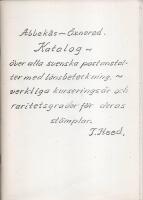 Abbekås — Öxnered.
Katalog ~
över alla svenska postanstal-
ter med länsbeteckning, ~
verkliga kurseringsår och
raritetsgrader för deras
stämplar.
T. Heed.